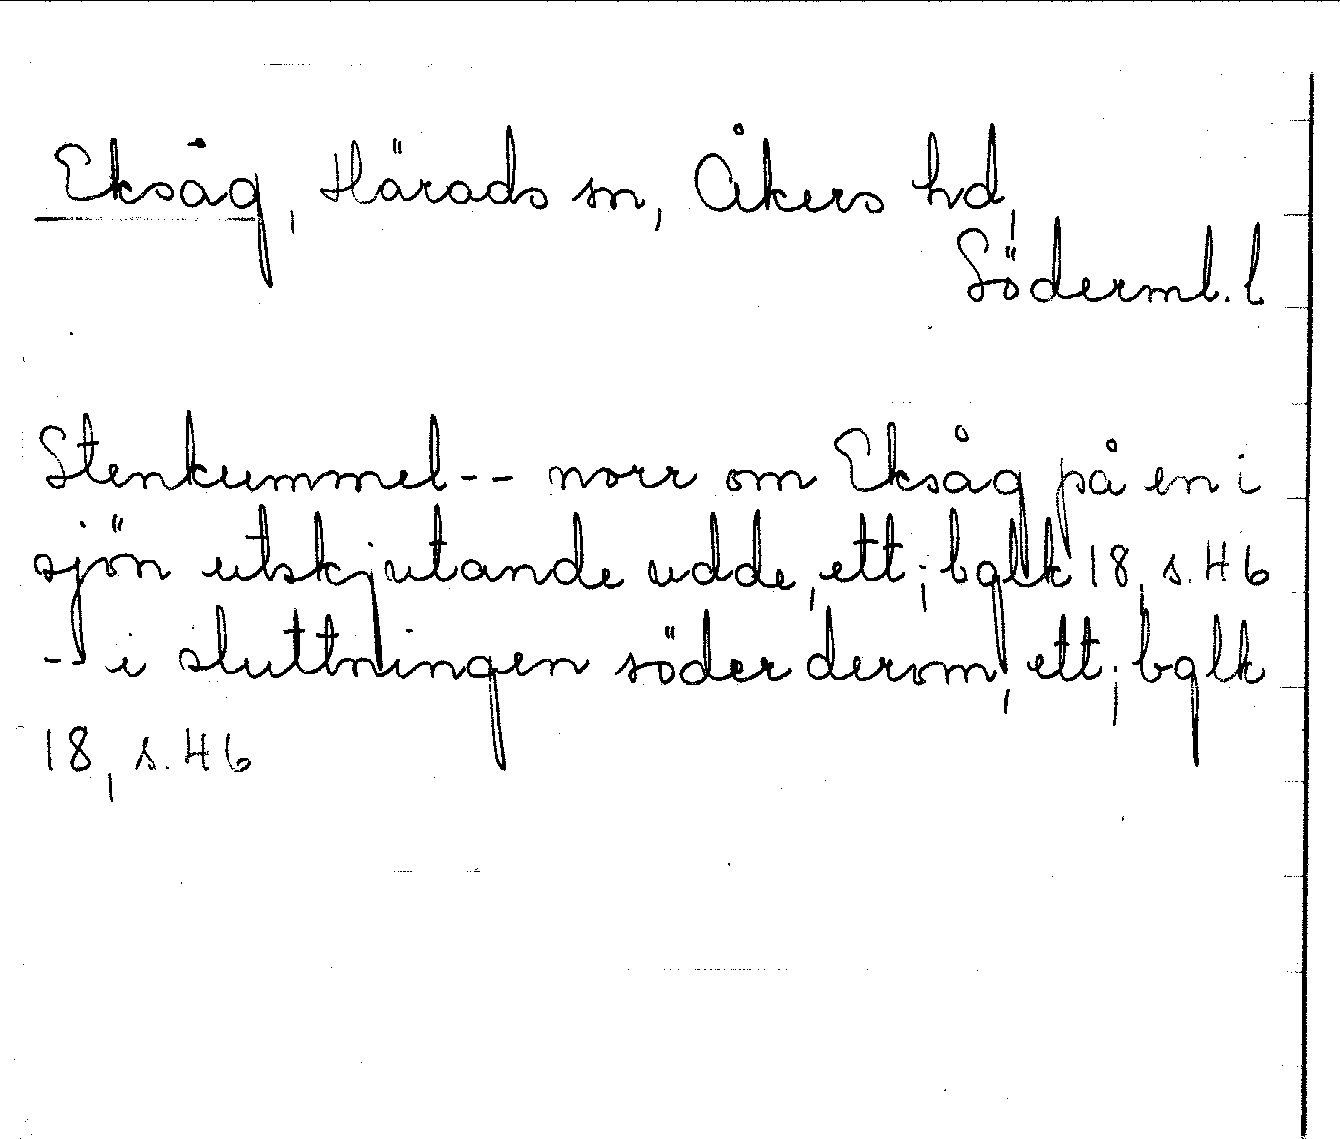 Eksåg, Härads sn, Åkers hd,
Söderml. l
Stenkummel -- norr om Eksåg på en i
sjön utskjutande udde, ett; bglk 18, s. 46
-- i sluttningen söder derom, ett; bglk
18, s. 46